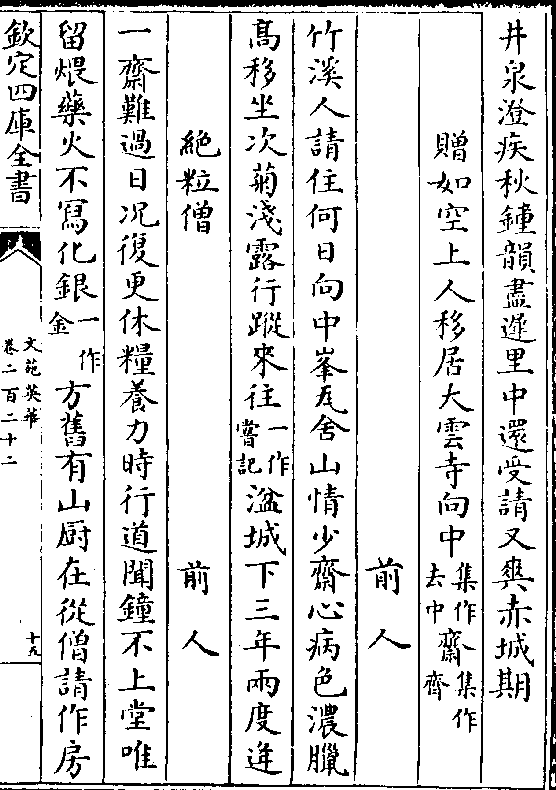 井泉澄疾秋鐘韻盡遲里中還受請又爽赤城期
贈如空上人移居大雲寺向中集作去中齋集作齊
前人
竹溪人請住何日向中峯瓦舍山情少齋心病色濃臘
髙移坐次菊淺露行蹤來往一作嘗記湓城下三年兩度逢
絶粒僧　前人
一齋難過日况復更休糧養力時行道聞鐘不上堂唯
留煨藥火不寫化銀一作金方舊有山厨在從僧請作房
欽定四庫全書
文苑英華
卷二百二十二
十九